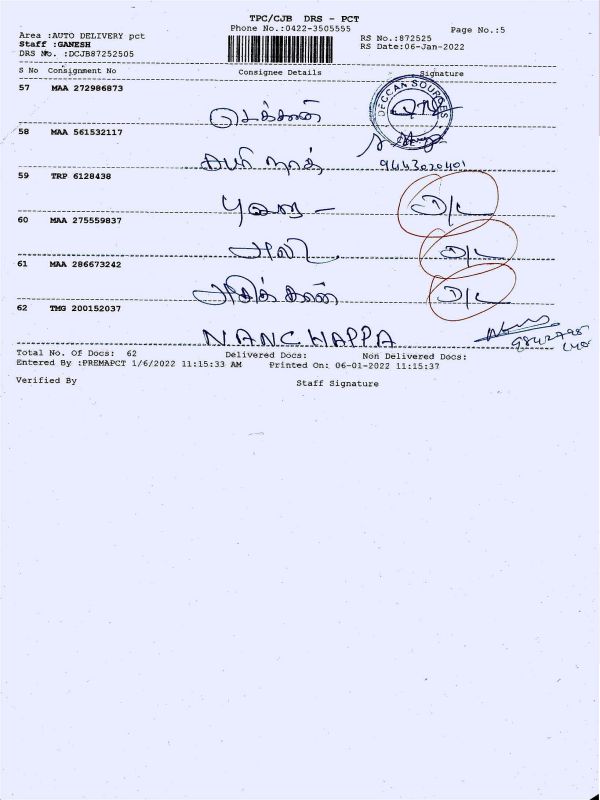 TPC/CJB DRS - PCT
Phone No.:0422-3505555
Page No.:5
Area :AUTO DELIVERY pct
RS No.:872525
Staff :GANESH
RS Date:06-Jan-2022
DRS No. :DCJB87252505
S No Consignment No Consignee Details Signature
57 MAA 272986873
டெக்கான்
DECCAN SOURCES
CBE
58 MAA 561532117
9443020401
59 TRP 6128438
D/L
60 MAA 275559837
அலி
D/L
61 MAA 286673242
D/L
62 TMG 200152037
NANCHAPPA
Total No. Of Docs: 62 Delivered Docs: Non Delivered Docs:
Entered By :PREMAPCT 1/6/2022 11:15:33 AM Printed On: 06-01-2022 11:15:37
Verified By Staff Signature